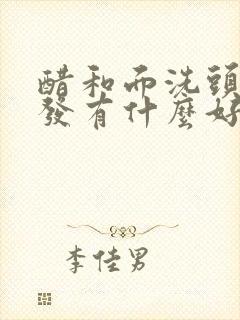 醋和而洗頭
發有什麼好
李佳男